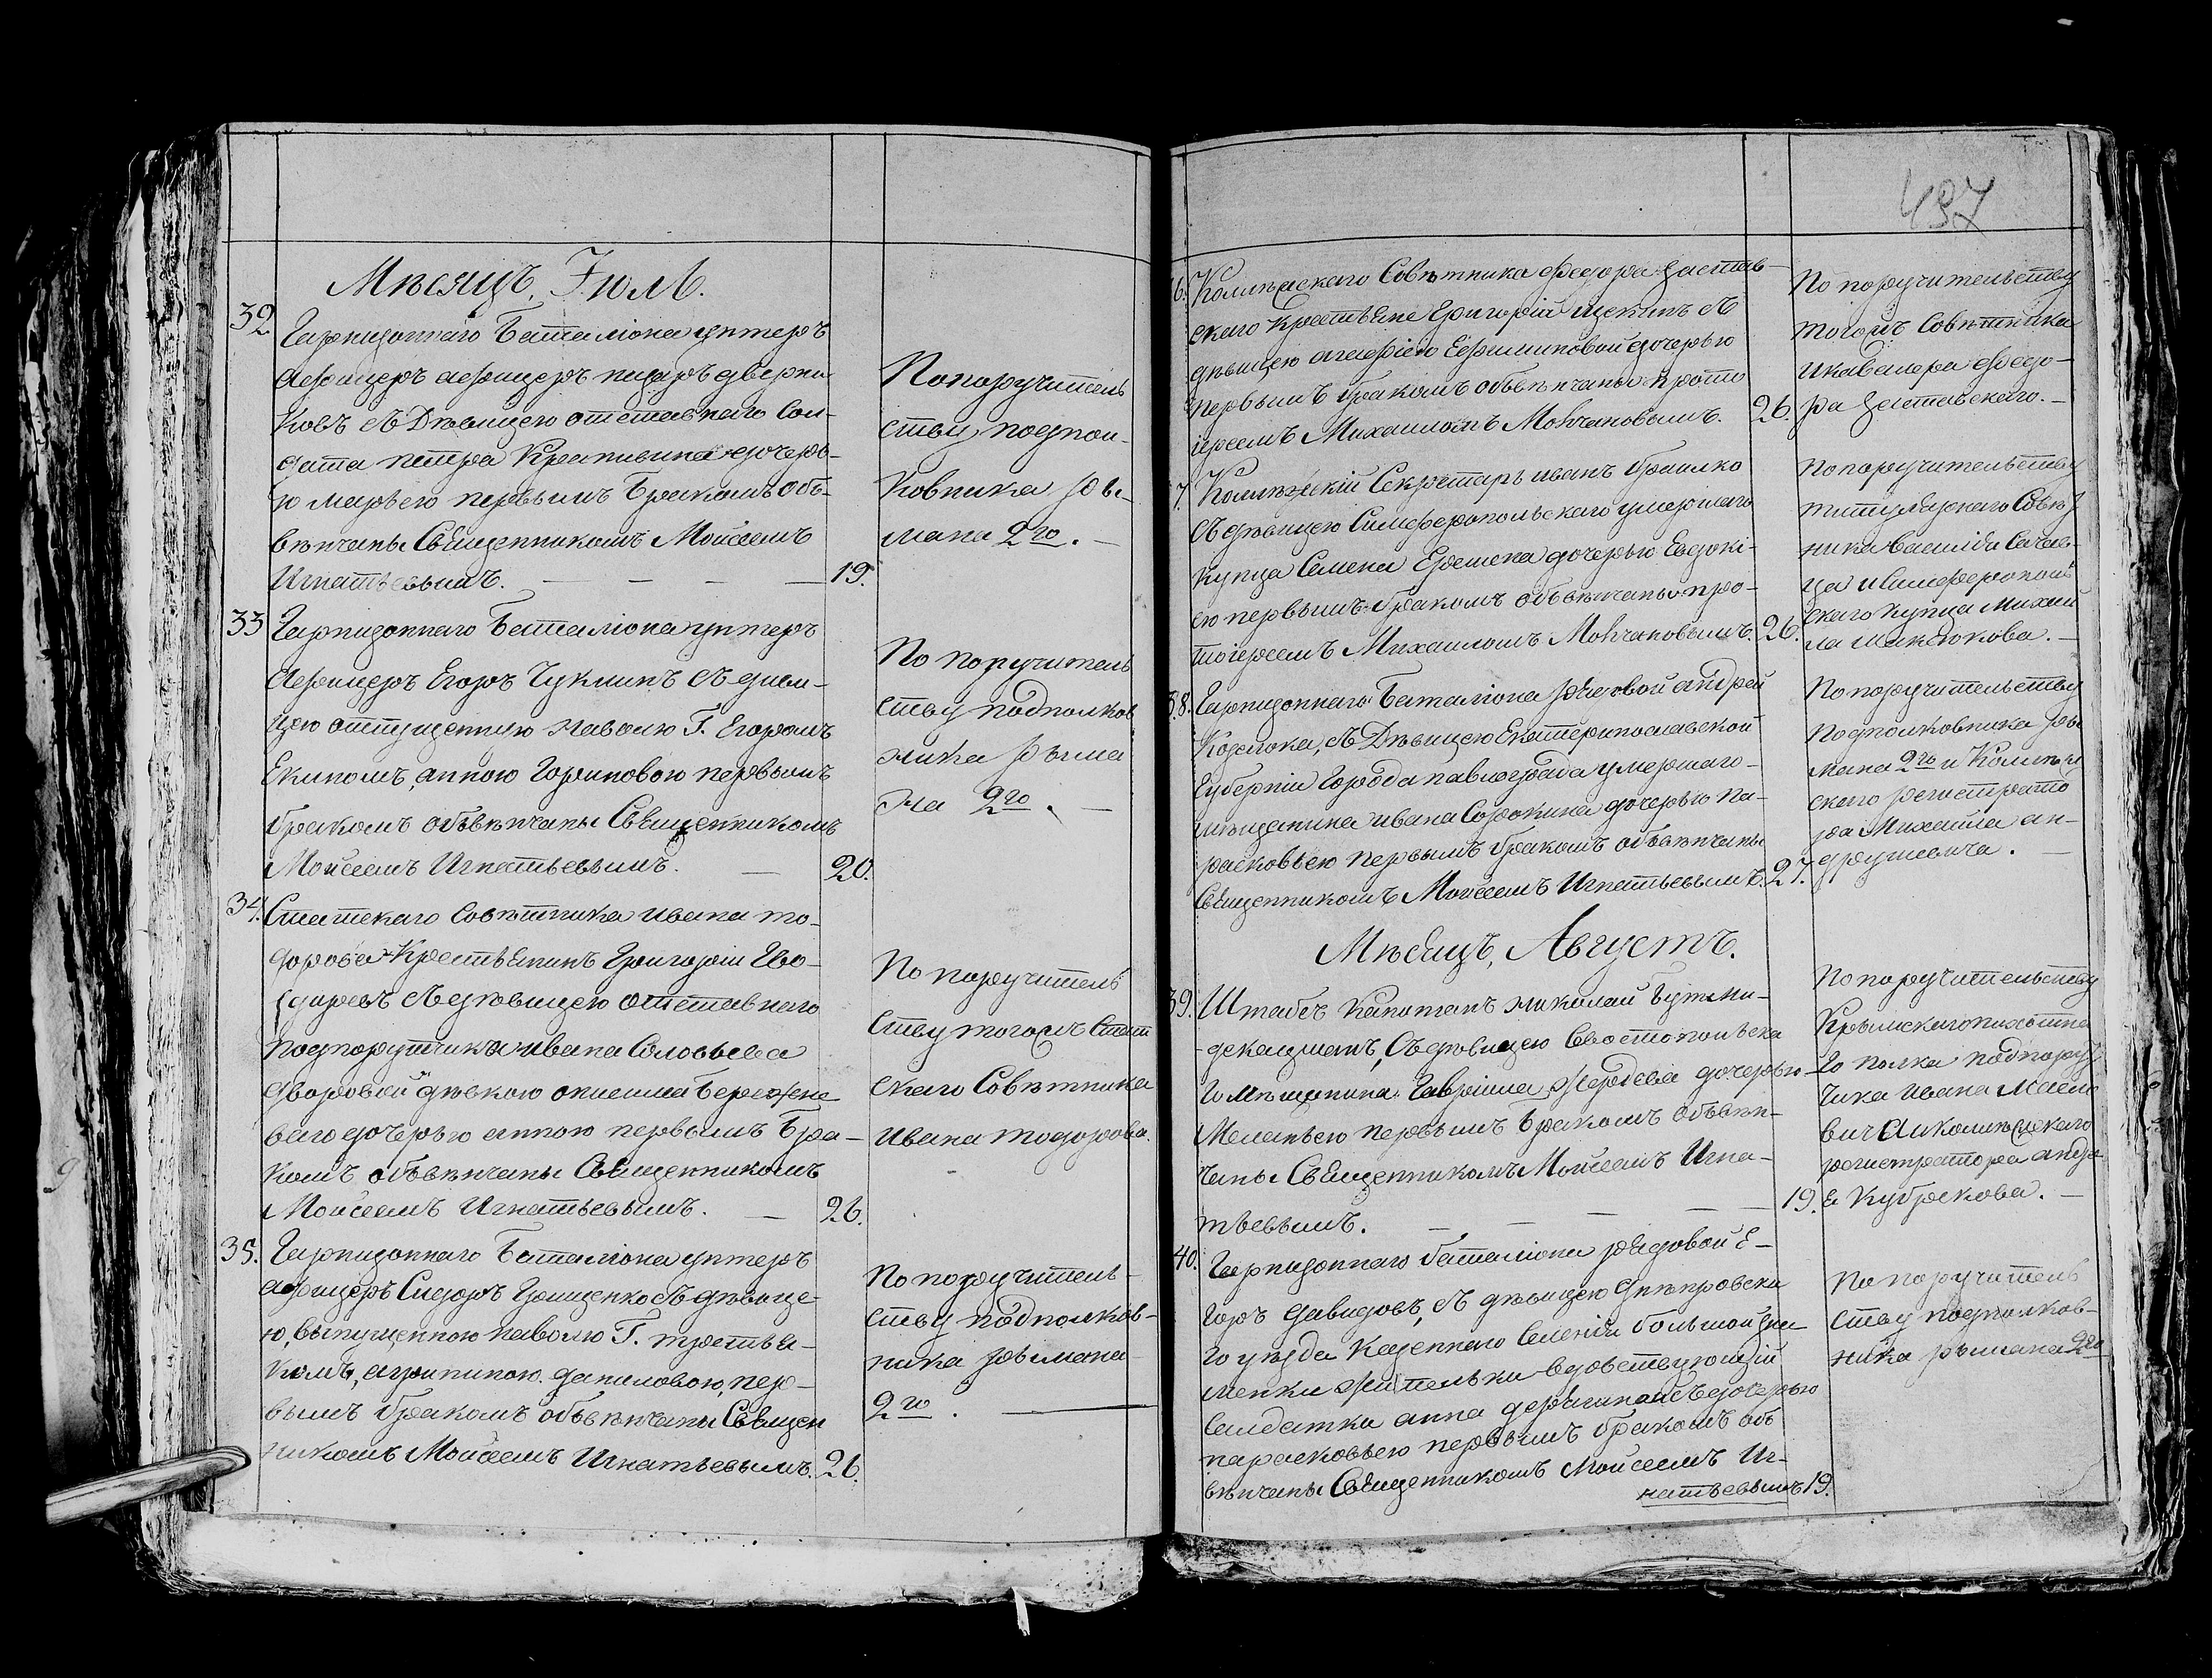 Мѣсяцъ, Іюль.
32
Гарнизоннаго Баталіона унтеръ
Афицеръ писарь дверни
ковъ съ Дѣвицею отставнаго Сол-
дата петра Крапивина дочерь-
ю марьею первымъ Бракомъ объ-
вѣнчаны Священникомъ Моисеемъ
Игнатьевымъ. — — — — 19.
По поручитель
ству подпол-
ковника Ры-
мана 2го. —
33
Гарнизоннаго Баталіона унтеръ
Афицеръ Егоръ Чуклинъ съ деви-
цею отпущенную наволю Г. Егоромъ
Екимомъ, анною Гориновою первымъ
бракомъ объвѣнчаны Священникомъ
Моисеемъ Игнатьевымъ. — 20.
По поручитель
ству подполков
ника Рыма
на 2го. —
34.
Статскаго Совѣтника ивана то-
дорова Крестьянинъ Григорій
съ дѣвицею отставнаго
подпоручика ивана Соловьева
дворовой дѣвкою Бережно
ваго дочерью анною первымъ Бра-
комъ объвѣнчаны Священникомъ
Моисеемъ Игнатьевымъ. — 26.
По поручитель
ству тогожъ Стат
скаго Совѣтника
Ивана тодорова.
35.
Гарнизоннаго Баталіона унтеръ
афицеръ Сидоръ Грищенко съ дѣвице-
ю, выпущенною наволю Г. третья-
комъ, агрипиною даниловою, пер-
вымъ бракомъ объвѣнчаны Священ
никомъ Моисеемъ Игнатьевымъ. 26.
По поручитель-
ству подполков-
ника Рымана
2го. —
497
6.
Колижскаго Совѣтника Федора застав-
скаго Григорій щекинъ съ
дѣвицею агафіею Ефимимовой дочерью
первымъ бракомъ объвѣнчаны прото
іереемъ Михаиломъ Молчановымъ. 26.
По поручительству
тогожъ Совѣтника
икавалера Федо-
ра заставскаго. —
7.
Колижскій Секретарь иванъ браилко
съ дѣвицею Симферопольскаго умершаго
купца Семена дочерью Евдокі-
ею первымъ бракомъ объвѣнчаны про-
тоіереемъ Михаиломъ Молчановымъ. 26.
По поручительству
титулярнаго Совѣт
ника Василія
исимферополь
скаго купца Михай
ла —
38.
Гарнизоннаго Баталіона рядовой андрей
Козлока, съ Дѣвицею Екатеринославской
Губерніи Города павлограда умершаго
мещанина ивана Сорокина дочерью па-
расковьею первымъ бракомъ объвѣнчаны
Священникомъ Моисеемъ Игнатьевымъ. 27.
По поручительству
Подполковника Ры
мана 2го и Колижс
скаго регистрато
ра Михаила ан-
друшевича. —
Мѣсяцъ, Августъ.
39.
Штабсъ Капитанъ николай
съ дѣвицею Севостопольска
го мѣщанина Гавріила Жердева дочерью
Меланьею первымъ бракомъ объвѣн-
чаны Священникомъ Моисеемъ Игна-
тьевымъ. — — — — 19.
По поручительству
Крымскаго пихотна
го полка подпору
чика ивана
иколижскаго
регистратора андре
я Кубракова. —
40.
Гарнизоннаго баталіона рядовой Е-
горъ давидовъ, съ дѣвицею днѣпровска
го уѣзда казеннаго Селенія большой зна
менки жительки вдовствующій
Салдатки анна дочерью
парасковьею первымъ бракомъ объ
вѣнчаны Священникомъ Моисеемъ Иг-
натьевымъ 19.
По поручитель
ству подполков-
ника рымана 2го